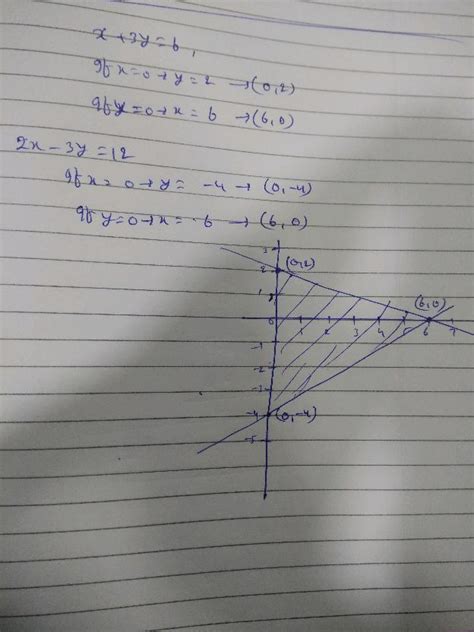 x + 3y = 6,
If x = 0 → y = 2 → (0, 2)
If y = 0 → x = 6 → (6, 0)
2x - 3y = 12
If x = 0 → y = -4 → (0, -4)
If y = 0 → x = 6 → (6, 0)
3
2 (0, 2)
1 (6, 0)
0 1 2 3 4 5 6 7
-1
-2
-3
-4 (0, -4)
-5